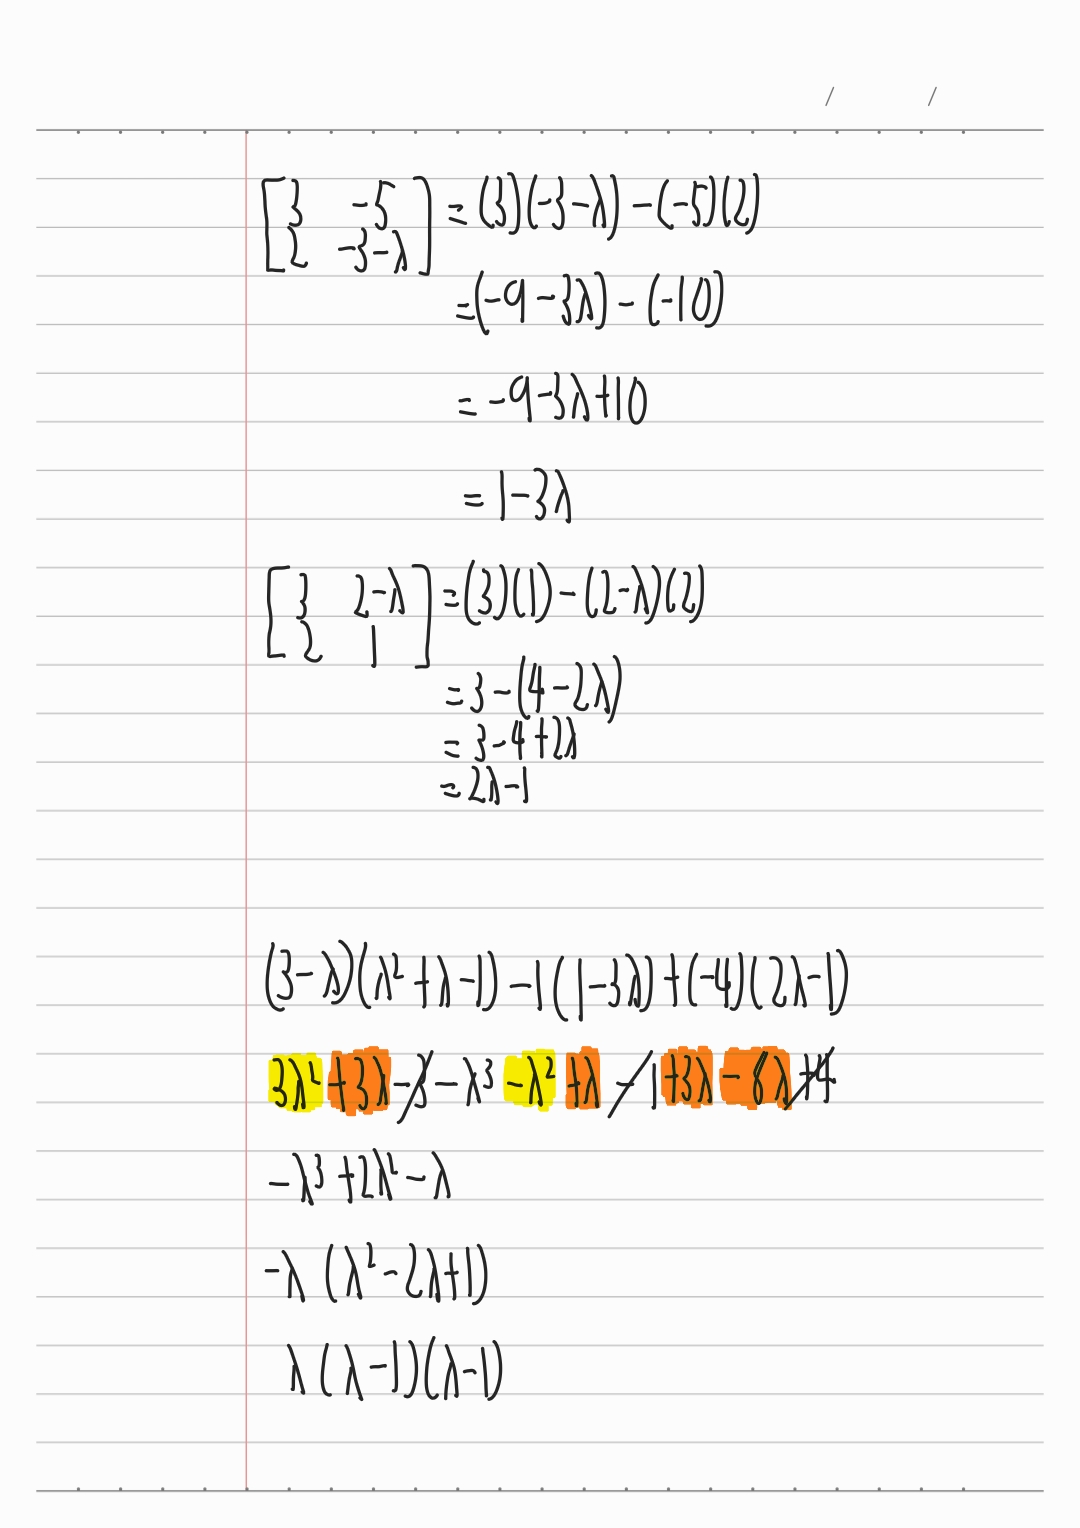 / /
[3 -5
2 -3-λ] = (3)(-3-λ) - (-5)(2)
=(-9-3λ) - (-10)
= -9-3λ+10
= 1-3λ
[3 2-λ
2 1] =(3)(1) - (2-λ)(2)
= 3-(4-2λ)
= 3-4+2λ
= 2λ-1
(3-λ)(λ²+λ-1) -1(1-3λ)+(-4)(2λ-1)
3λ²+3λ-3-λ³-λ²+λ-1+3λ-8λ+4
-λ³+2λ²-λ
-λ(λ²-2λ+1)
λ(λ-1)(λ-1)